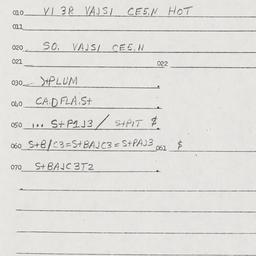 010 VI 3R VAJSI CES.N HOT
011
020 SO. VAJSI CES.N
021 022
030 )+PLUM
040 CA.D FLA.S+
050 ... S+P1J3 / S+PIT $
060 S+B/C3=S+BAJC3=S+PAJ3 061 $
070 S+BAJC3T2